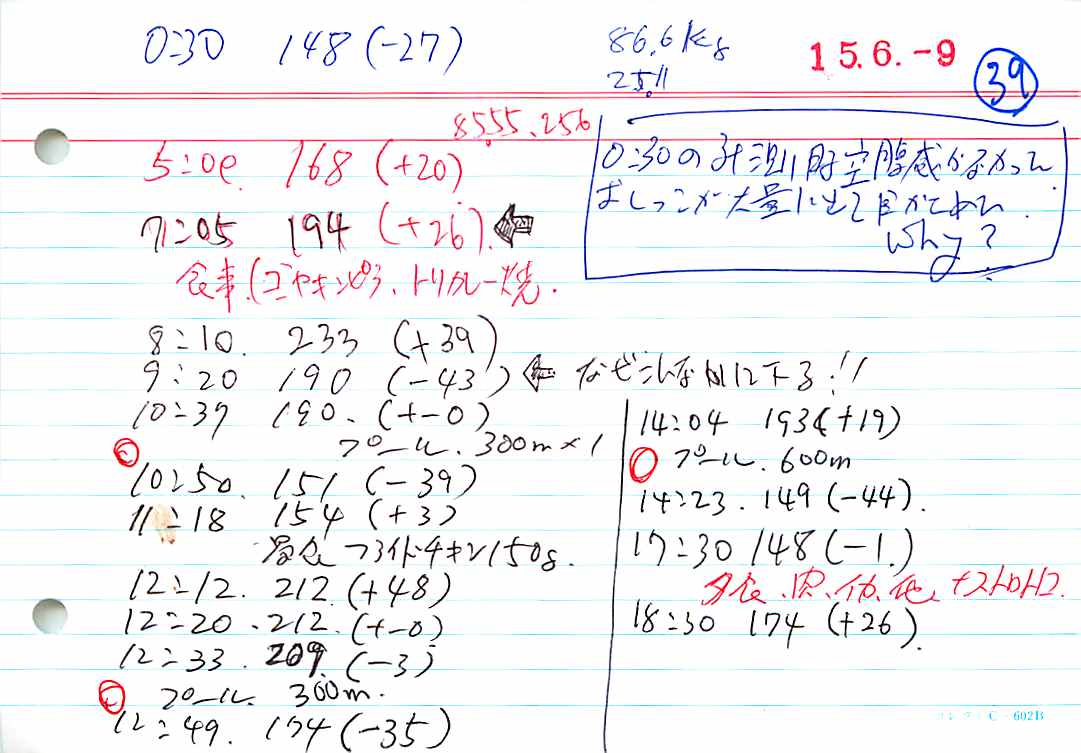 0:30 148 (-27)
86.6kg
25.11
15.6.-9
39
8555.256
5:00 168 (+20)
0:30の計測時空腹感がなかった
おしっこが大量に出て目がさめた.
Why?
7:05 194 (+26)
食事.(ゴーヤキンピラ、トリカレー焼.
8:10. 233 (+39)
9:20 190 (-43)
なぜこんなに下る!!
10:37 190. (+-0)
プール. 300m×1
10:50. 151 (-39)
11:18 154 (+3)
昼食 フライドチキン150g.
12:12. 212 (+48)
12:20. 212. (+-0)
12:33. 209 (-3)
プール. 300m.
12:49. 174 (-35)
14:04 193 (+19)
プール. 600m
14:23. 149 (-44).
17:30 148 (-1.)
夕食、肉、イカ、他、
18:30 174 (+26).
コレクト C-602B